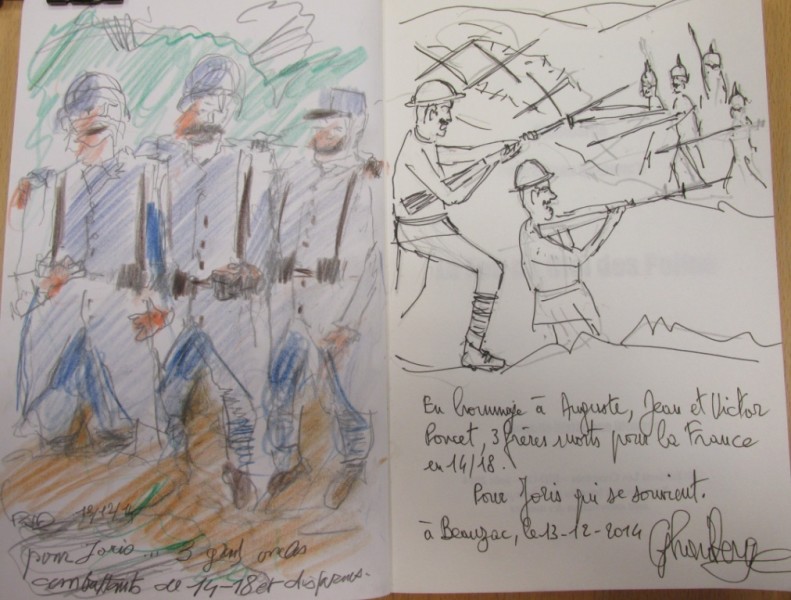 13/12/14
pour Joris... 3 grands oncles
combattants de 14-18 et disparus.
En hommage à Auguste, Jean et Victor
Poncet, 3 frères morts pour la France
en 14/18.
Pour Joris qui se souvient.
à Beauzac, le 13-12-2014